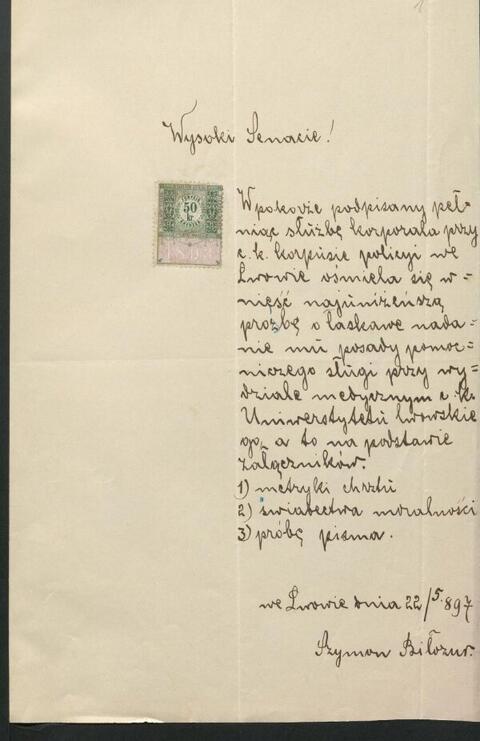 1
Wysoki Senacie!
50
kr
W pokorze podpisany peł-
niąc służbę korporala przy
c. k. korpusie policyi we
Lwowie ośmiela się w-
nięść najuniżeńszą
prożbę o łaskawe nada-
nie mu posady pomoc-
niczego sługi przy wy-
dziale medycznym c. k.
Uniwerstytetu lwowskie
go, a to na podstawie
załączników.
1) metryki chrztu
2) świadectwa moralności
3) próbę pisma.
we Lwowie dnia 22/5. 897
Szymon Biłozur.